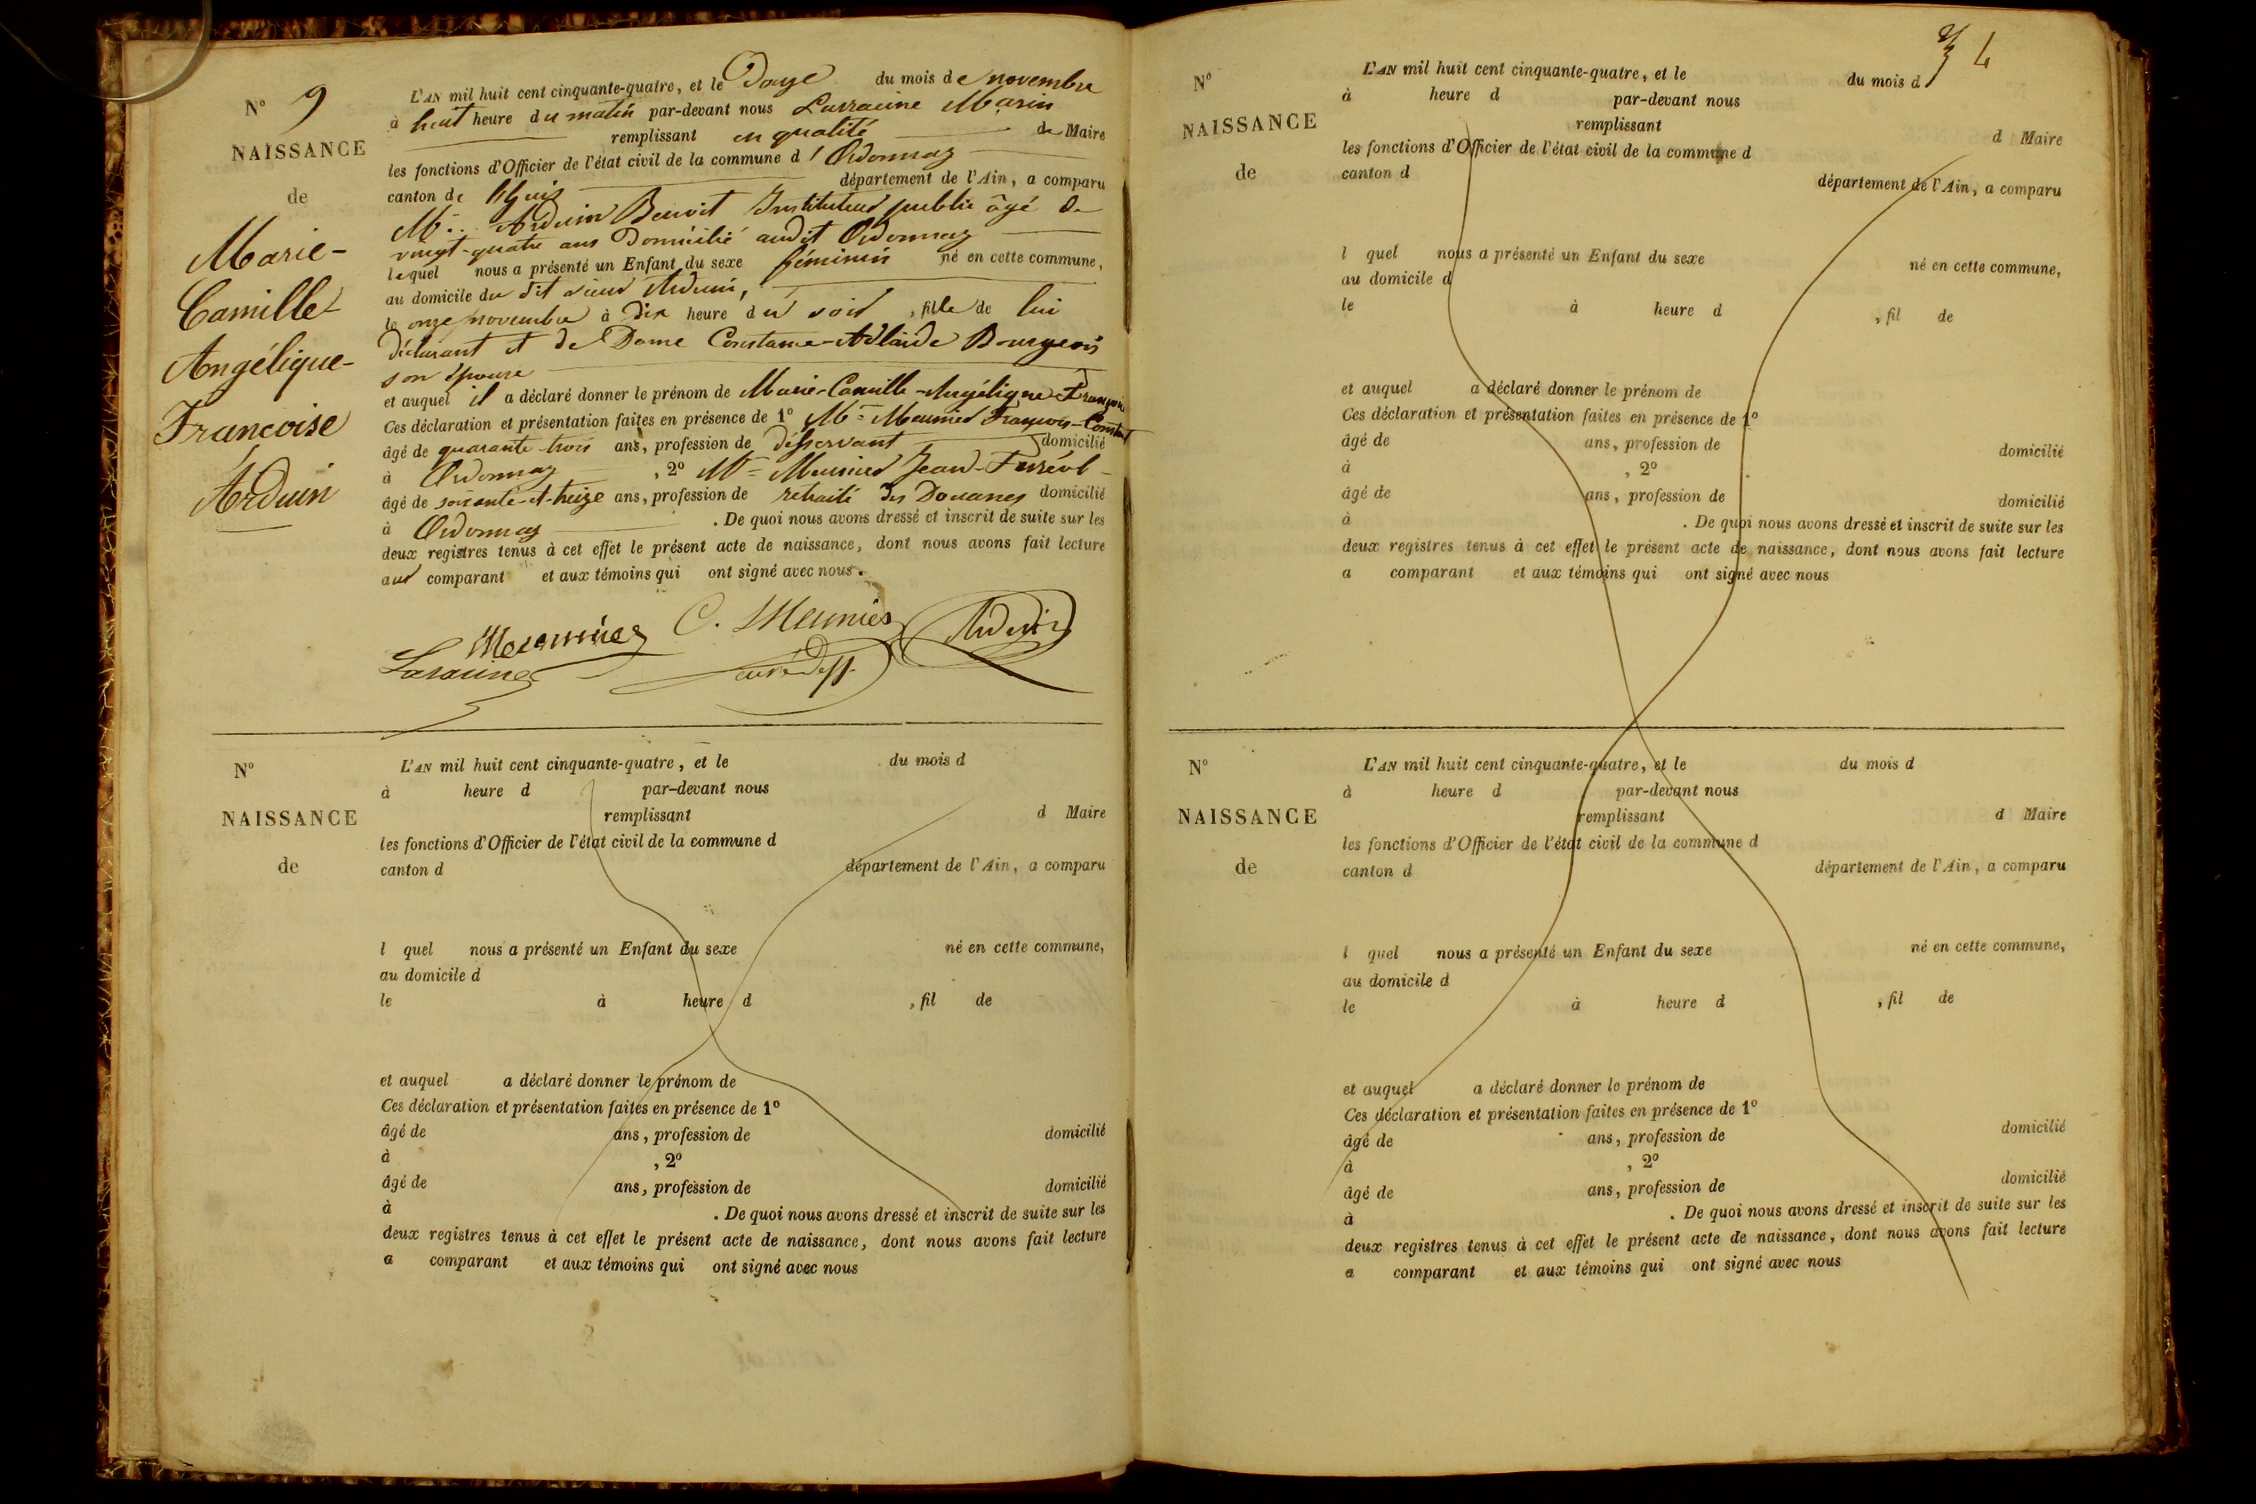 N° 9
NAISSANCE
de
Marie-
Camille
Angélique-
Francoise
Arduin
L'AN mil huit cent cinquante-quatre, et le Douze du mois de novembre
à huit heure du matin par-devant nous Larracine Marin
remplissant en qualité de Maire
les fonctions d'Officier de l'état civil de la commune d'Ordonnaz
canton de département de l'Ain, a comparu
M. Arduin Benoit Instituteur public âgé de
vingt-quatre ans Domicilié audit Ordonnaz
lequel nous a présenté un Enfant du sexe féminin né en cette commune,
au domicile du dit sieur Arduin,
le onze novembre à Dix heure du soir, fille de lui
déclarant et de Dame Constance-Adlaïde Bourgeois
son épouse
et auquel il a déclaré donner le prénom de Marie-Camille-Angélique Françoise
Ces déclaration et présentation faites en présence de 1° Mr Meunier François-Constant
âgé de quarante-trois ans, profession de desservant domicilié
à Ordonnaz, 2° Mr Meunier Jean-
âgé de soixante-et-treize ans, profession de retraité des Douanes domicilié
à Ordonnaz. De quoi nous avons dressé et inscrit de suite sur les
deux registres tenus à cet effet le présent acte de naissance, dont nous avons fait lecture
au comparant et aux témoins qui ont signé avec nous.
Meunier C. Meunier Arduin
Laracine curé Dess.
N°
NAISSANCE
de
L'AN mil huit cent cinquante-quatre, et le du mois d
à heure d par-devant nous
remplissant d Maire
les fonctions d'Officier de l'état civil de la commune d
canton d département de l'Ain, a comparu
l quel nous a présenté un Enfant du sexe né en cette commune,
au domicile d
le à heure d , fil de
et auquel a déclaré donner le prénom de
Ces déclaration et présentation faites en présence de 1°
âgé de ans, profession de domicilié
à , 2°
âgé de ans, profession de domicilié
à . De quoi nous avons dressé et inscrit de suite sur les
deux registres tenus à cet effet le présent acte de naissance, dont nous avons fait lecture
a comparant et aux témoins qui ont signé avec nous
N°
NAISSANCE
de
L'AN mil huit cent cinquante-quatre, et le du mois d
à heure d par-devant nous
remplissant d Maire
les fonctions d'Officier de l'état civil de la commune d
canton d département de l'Ain, a comparu
l quel nous a présenté un Enfant du sexe né en cette commune,
au domicile d
le à heure d , fil de
et auquel a déclaré donner le prénom de
Ces déclaration et présentation faites en présence de 1°
âgé de ans, profession de domicilié
à , 2°
âgé de ans, profession de domicilié
à . De quoi nous avons dressé et inscrit de suite sur les
deux registres tenus à cet effet le présent acte de naissance, dont nous avons fait lecture
a comparant et aux témoins qui ont signé avec nous
N°
NAISSANCE
de
L'AN mil huit cent cinquante-quatre, et le du mois d
à heure d par-devant nous
remplissant d Maire
les fonctions d'Officier de l'état civil de la commune d
canton d département de l'Ain, a comparu
l quel nous a présenté un Enfant du sexe né en cette commune,
au domicile d
le à heure d , fil de
et auquel a déclaré donner le prénom de
Ces déclaration et présentation faites en présence de 1°
âgé de ans, profession de domicilié
à , 2°
âgé de ans, profession de domicilié
à . De quoi nous avons dressé et inscrit de suite sur les
deux registres tenus à cet effet le présent acte de naissance, dont nous avons fait lecture
a comparant et aux témoins qui ont signé avec nous